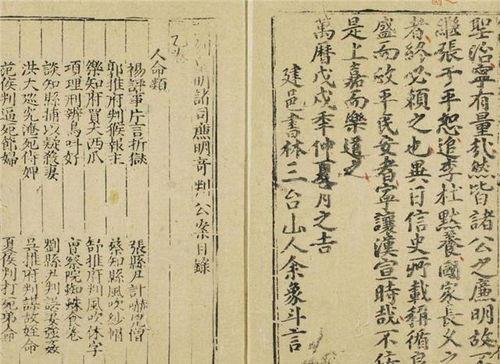 聖治寧有量哉然皆諸公之廉明故
繼張于平恕追李杜默養國家長久之
者終必賴之也異日信史所載循良
盛而政平民安者寧讓漢宣時哉不
是上嘉而樂道之
萬曆戊戌年仲夏月之吉
建邑書林三台山人余象斗言
明諸司廉明奇判公案目錄
人命類
楊評事片言折獄 張縣尹計嚇僧
郭推府判猴報主 蔡知縣風吹紗帽
樂知府買大西瓜 舒推府判風吹休字
項理刑辨鳥叫好 曾察院蜘蛛食卷
談知縣捕以疑殺妻 劉縣尹判誤妻強姦
洪大巡究淹死侍婢 吳推府判謀故姪命
范侯判逼死節婦 夏侯判打死弟命